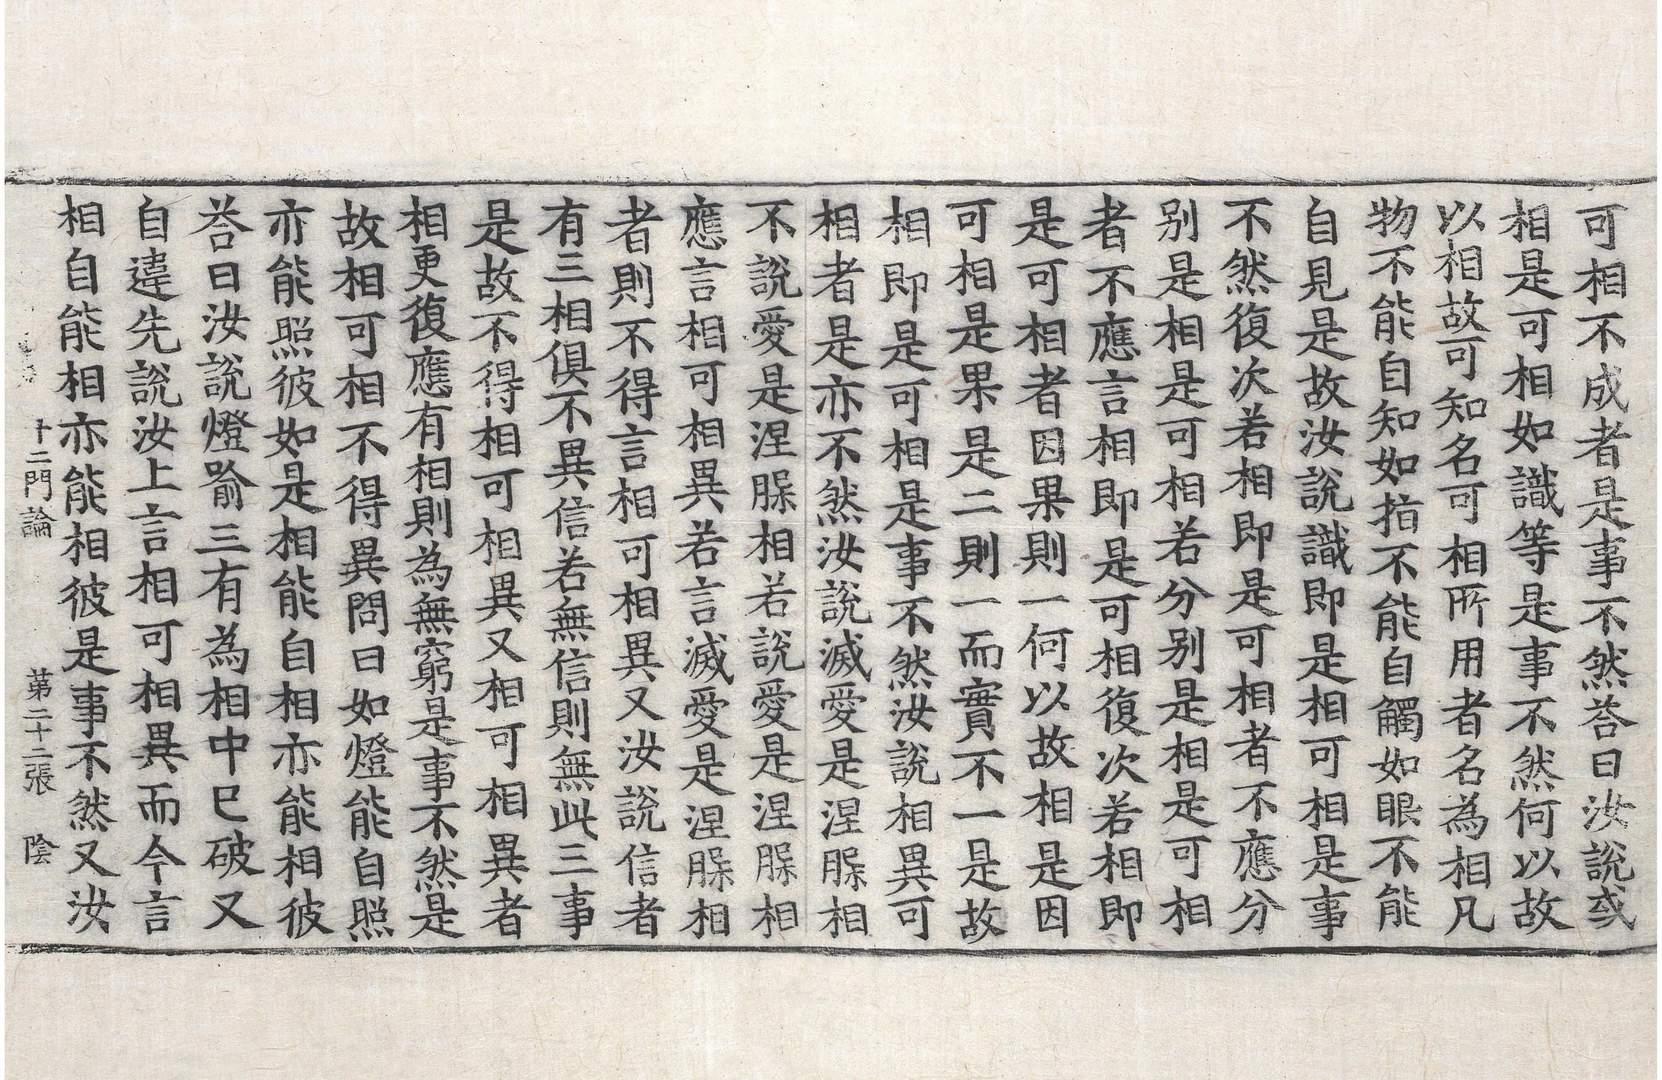 可相不成者是事不然荅曰汝說或
相是可相如識等是事不然何以故
以相故可知名可相所用者名為相凡
物不能自知如指不能自觸如眼不能
自見是故汝說識即是相可相是事
不然復次若相即是可相者不應分
别是相是可相若分别是相是可相
者不應言相即是可相復次若相即
是可相者因果則一何以故相是因
可相是果是二則一而實不一是故
相即是可相是事不然汝說相異可
相者是亦不然汝說滅愛是涅槃相
不說愛是涅槃相若說愛是涅槃相
應言相可相異若言滅愛是涅槃相
者則不得言相可相異又汝說信者
有三相俱不異信若無信則無此三事
是故不得相可相異又相可相異者
相更復應有相則為無窮是事不然是
故相可相不得異問曰如燈能自照
亦能照彼如是相能自相亦能相彼
荅曰汝說燈喻三有為相中已破又
自違先說汝上言相可相異而今言
相自能相亦能相彼是事不然又汝
十二門論 第二十二張 陰